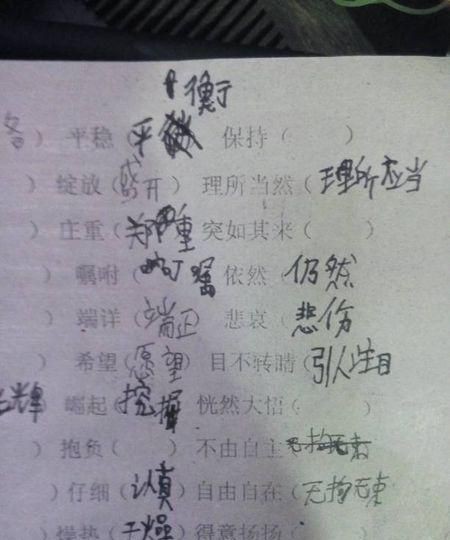 衡
） 平稳（平 保持（ ）
） 绽放（盛开） 理所当然（理所应当
） 庄重（郑重 突如其来（ ）
） 嘱咐（叮嘱 依然（仍然
） 端详（端正） 悲哀（悲伤
） 希望（愿望） 目不转睛（引人注目
） 崛起（挖掘 恍然大悟（ ）
） 抱负（ ） 不由自主（无拘无束
） 仔细（认真 自由自在（无拘无束
燥热（干燥 得意扬扬（